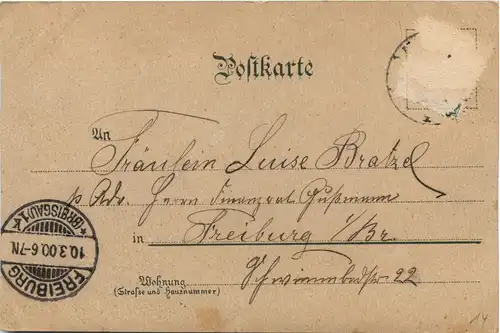 Postkarte
An
Fräulein Luise Bratzel
p. Adr. Herrn Finanzrat Gußmann
in Freiburg i/Br.
Wohnung
(Straße und Hausnummer)
Schwimmbadstr. 22
*(BREISGAU)1*
10.3.00.6-7N.
FREIBURG
14